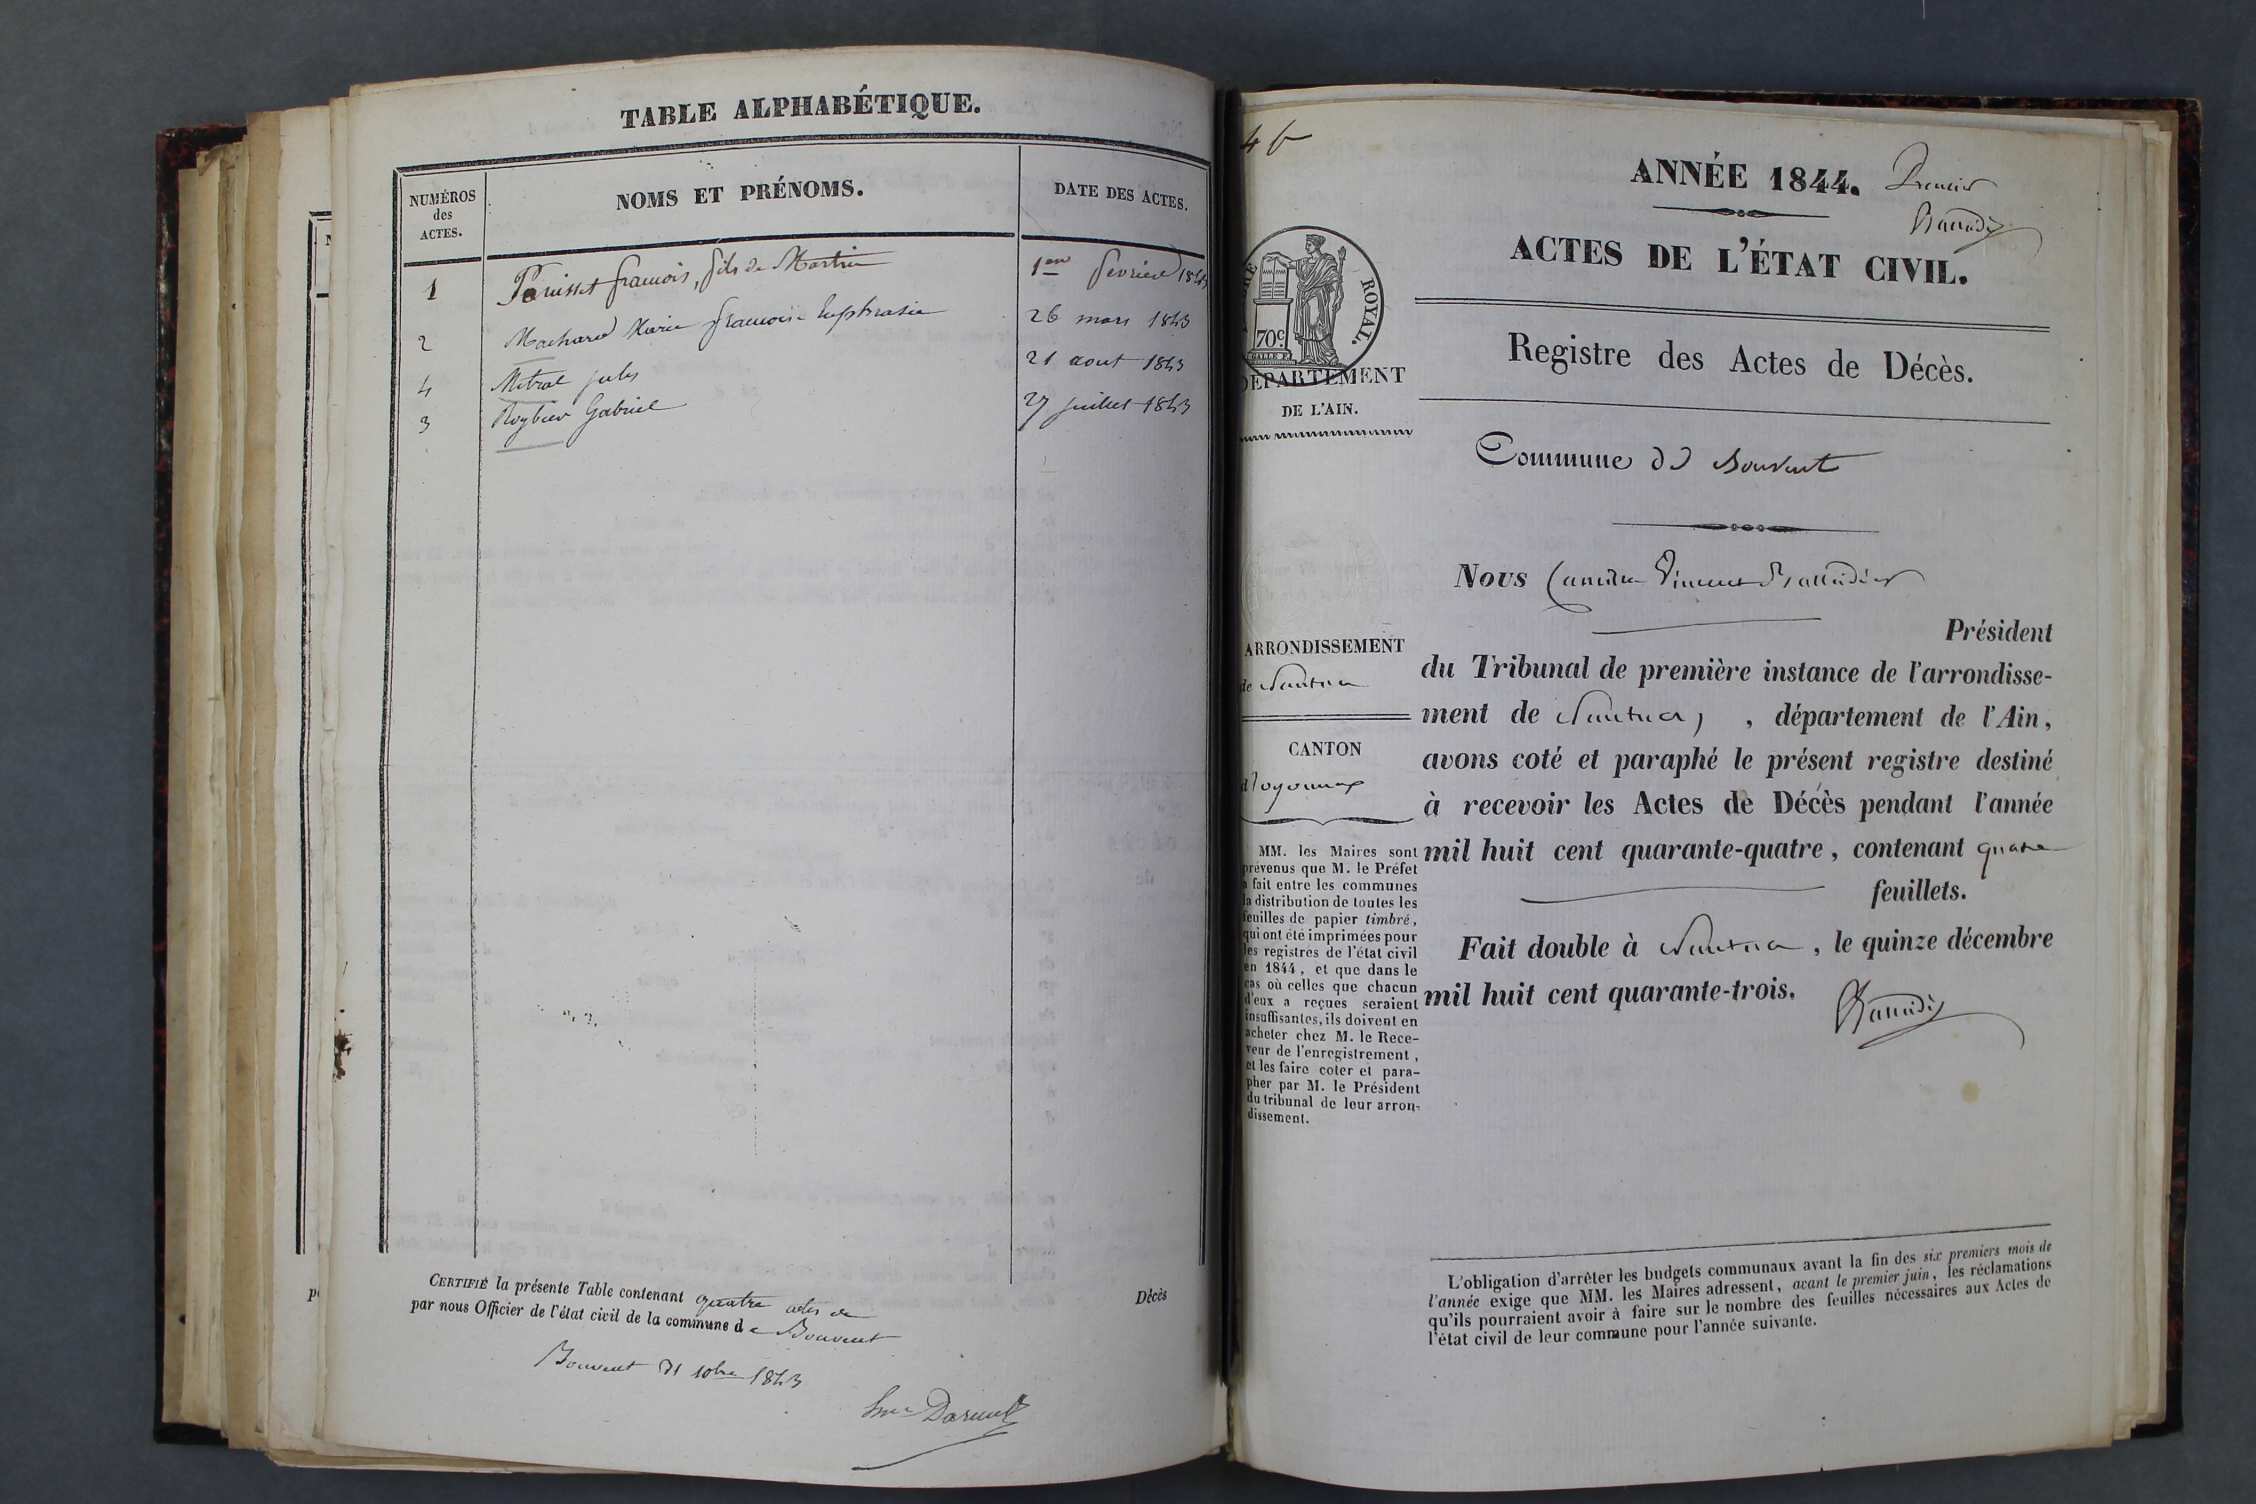 TABLE ALPHABÉTIQUE.
NUMÉROS
des
ACTES.
NOMS ET PRÉNOMS.
DATE DES ACTES.
1 francois, fils de Martin 1er fevrier 1843
2 Machard Marie francoise Euphrasie 26 mars 1843
4 Mitral jules 21 aout 1843
3 Roybier Gabriel 27 juillet 1843
CERTIFIÉ la présente Table contenant quatre actes de
Décès
par nous Officier de l'état civil de la commune de Bouvent
Bouvent 31 10bre 1843
46
ANNÉE 1844.
Premier
ACTES DE L'ÉTAT CIVIL.
ROYAL.
70c.
DÉPARTEMENT
DE L'AIN.
Registre des Actes de Décès.
Commune de Bouvent
Nous Vincent
Président
ARRONDISSEMENT
de Nantua
du Tribunal de première instance de l'arrondisse-
ment de Nantua, département de l'Ain,
CANTON
d'oyonnax
avons coté et paraphé le présent registre destiné
à recevoir les Actes de Décès pendant l'année
mil huit cent quarante-quatre, contenant quatre
feuillets.
Fait double à Nantua, le quinze décembre
mil huit cent quarante-trois.
MM. les Maires sont
prévenus que M. le Préfet
a fait entre les communes
la distribution de toutes les
feuilles de papier timbré,
qui ont été imprimées pour
les registres de l'état civil
en 1844, et que dans le
cas où celles que chacun
d'eux a reçues seraient
insuffisantes, ils doivent en
acheter chez M. le Rece-
veur de l'enregistrement,
et les faire coter et para-
pher par M. le Président
du tribunal de leur arron-
dissement.
L'obligation d'arrêter les budgets communaux avant la fin des six premiers mois de
l'année exige que MM. les Maires adressent, avant le premier juin, les réclamations
qu'ils pourraient avoir à faire sur le nombre des feuilles nécessaires aux Actes de
l'état civil de leur commune pour l'année suivante.